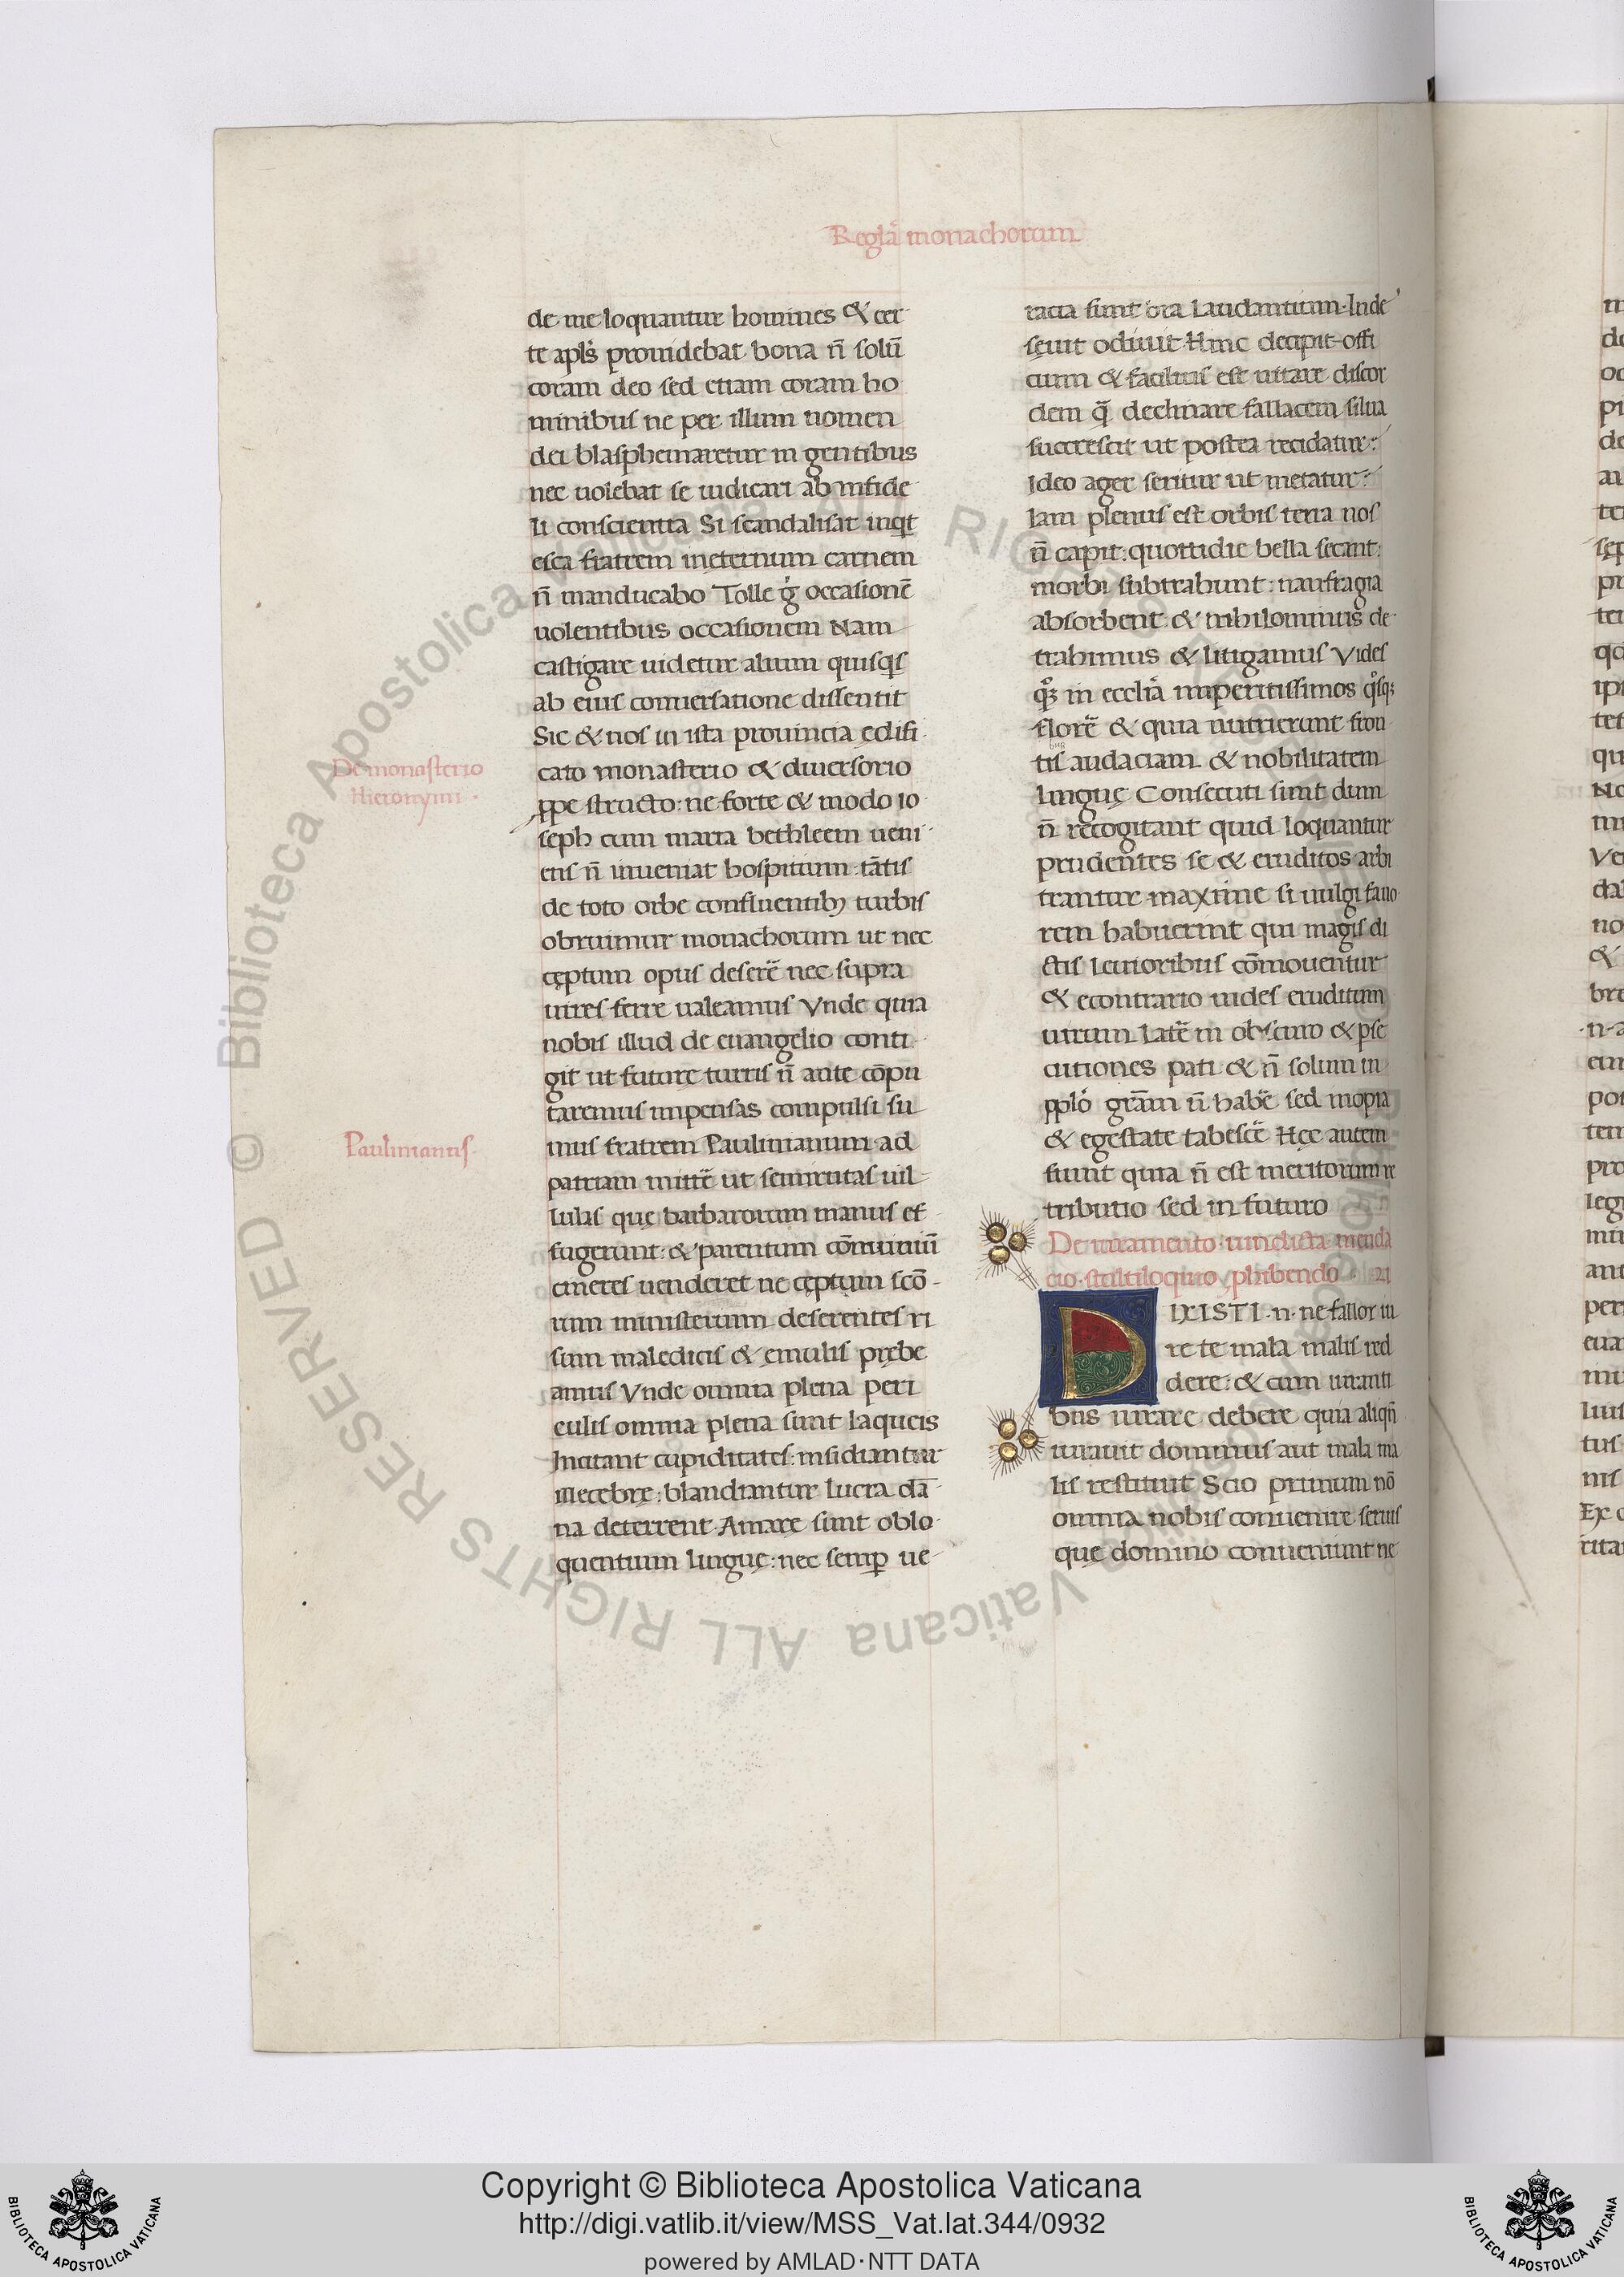 Reglã monachorum
de me loquantur homines & cer
te apłs prouidebat bona ñ solũ
coram deo sed etiam coram ho
minibus ne per illum nomen
dei blasphemaretur in gentibus
nec uolebat se iudicari ab infide
li conscientia Si scandalisat inqt
esca fratrem ineternum carnem
ñ manducabo Tolle g̉ occasionẽ
uolentibus occasionem Nam
castigare uidetur alium quisqs
ab eius conuersatione dissentit
Sic & nos in ista prouincia edifi
De monasterio
Hieronymi
cato monasterio & diuersorio
ꝓpe structo: ne forte & modo io
seph cum maria bethleem ueni
ens ñ inueniat hospitium tãtis
de toto orbe confluentibꝫ turbis
obruimur monachorum ut nec
cęptum opus deserẽ nec supra
uires ferre ualeamus Vnde quia
nobis illud de euangelio conti
git ut future turris ñ ante cõpu
taremus impensas compulsi su
Paulinianus
mus fratrem Paulinianum ad
patriam mittẽ ut semirutas uil
lulas que barbarorum manus ef
fugerunt: & parentum cõmuniũ
cineres uenderet ne cęptum scõ
rum ministerium deserentes ri
sum maledicis & ęmulis prębe
amus Vnde omnia plena peri
culis omnia plena sunt laqueis
Incitant cupiditates: insidiantur
illecebrę: blandiantur lucra dã
na deterrent Amare sunt oblo
quentium linguę: nec semꝑ ue
racia sunt ora laudantium. Inde
sęuit odiuit Hinc decipit offi
cium & facilius est uitare discor
dem q̃ declinare fallacem silua
succrescit ut postea recidatur:
Ideo ager seritur ut metatur:
Iam plenus est orbis terra nos
ñ capit: quottidie bella secant:
morbi subtrahunt: naufragia
absorbent & nihilominus de
trahimus & litigamus Vides
qͦꝫ in eccliã imperitissimos qͦsqꝫ
florẽ & quia nutrierunt fron
tis audaciam & nobilitatem
linguę Consecuti sunt dum
ñ recogitant quid loquantur
prudentes se & eruditos arbi
trantur maxime si uulgi fauo
rem habuerint qui magis di
ctis leuioribus cõmouentur
& econtrario uides eruditum
uirum latẽ in obscuro & pse
cutiones pati & ñ solum in
ꝓplo grãm ñ habẽ sed inopia
& egestate tabescẽ Hęc autem
fiunt quia ñ est meritorum re
tributio sed in futuro
De iuramento uindicta menda
cio stultiloquio ꝓhibendo 21
DIXISTI n ne fallor iu
re te mala malis red
dere: & cum iuranti
bus iurare debere quia aliqñ
iurauit dominus aut mala ma
lis restituit Scio primum nõ
omnia nobis conuenire seruis
que domino conueniunt ne
Copyright © Biblioteca Apostolica Vaticana
http://digi.vatlib.it/view/MSS_Vat.lat.344/0932
powered by AMLAD·NTT DATA
BIBLIOTECA APOSTOLICA VATICANA
BIBLIOTECA APOSTOLICA VATICANA
© Biblioteca Apostolica Vaticana ALL RIGHTS RESERVED